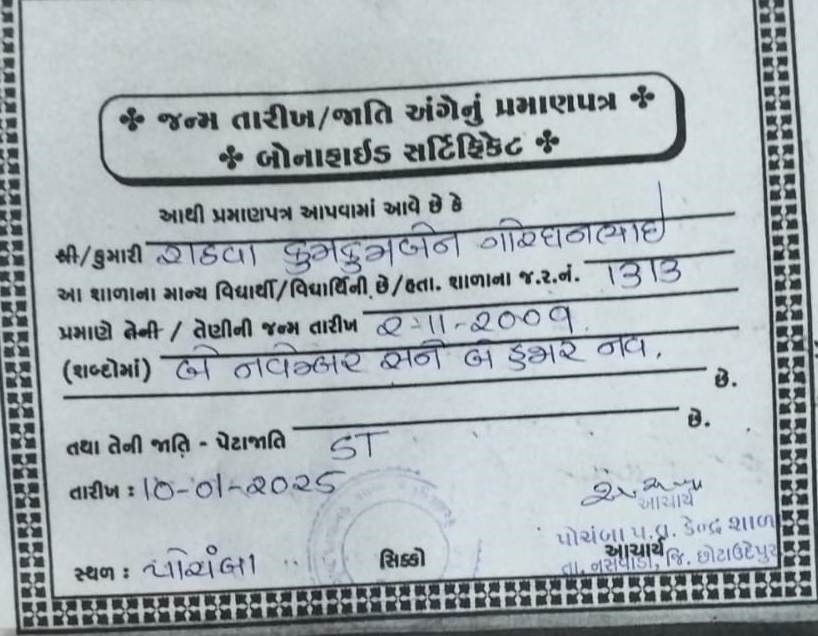 ✤ જન્મ તારીખ/જાતિ અંગેનું પ્રમાણપત્ર ✤
✤ બોનાફાઈડ સર્ટિફિકેટ ✤
આથી પ્રમાણપત્ર આપવામાં આવે છે કે
શ્રી/કુમારી રાઠવા કુમકુમબેન ગોરધનભાઈ
આ શાળાના માન્ય વિદ્યાર્થી/વિદ્યાર્થિની છે/હતા. શાળાના જ.ર.નં. 1313
પ્રમાણે તેની / તેણીની જન્મ તારીખ ૨-11-૨009
(શબ્દોમાં) બે નવેમ્બર સને બે હજાર નવ.
છે.
છે.
તથા તેની જાતિ - પેટાજાતિ ST
તારીખ : 10-01-૨0૨5
આચાર્ય
પોચંબા પ.વ. કેન્દ્ર શાળ
સ્થળ : પોચંબા સિક્કો આચાર્ય
તા. નસવાડી, જિ. છોટાઉદેપુર